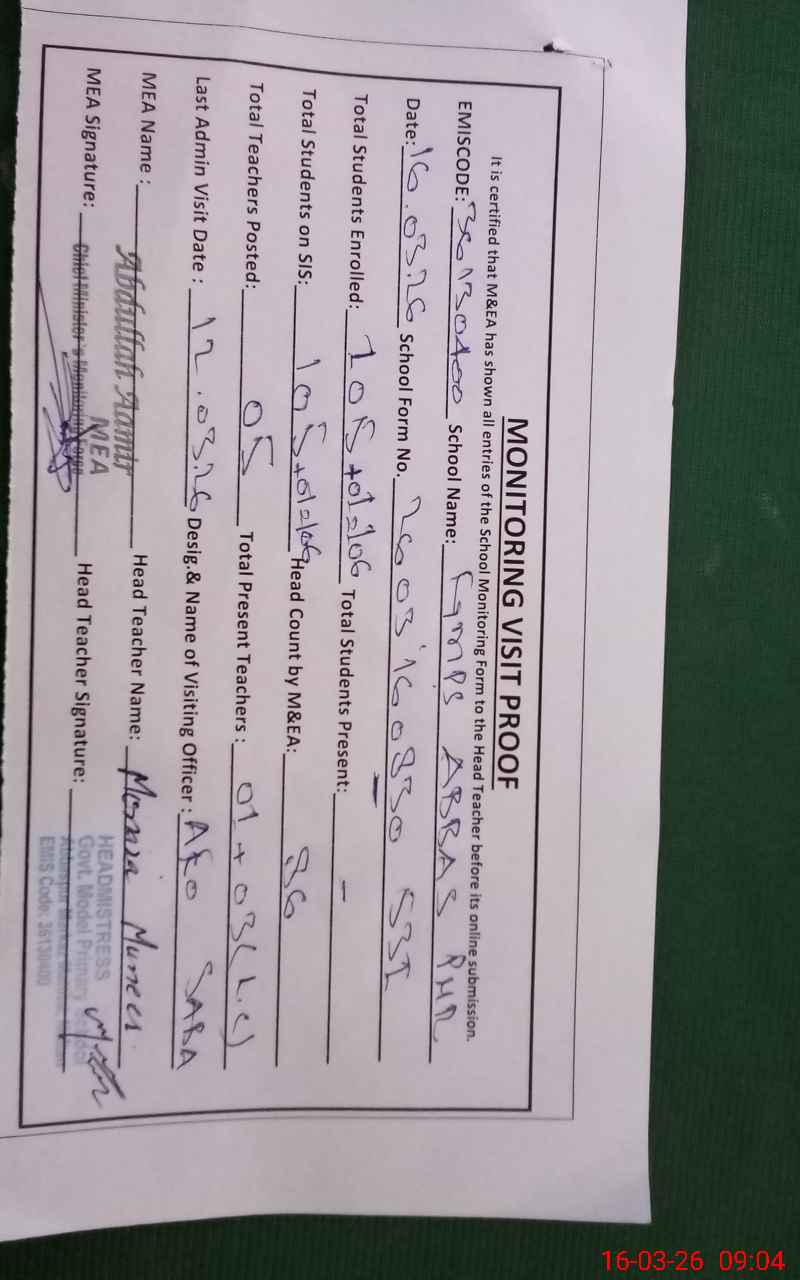 MONITORING VISIT PROOF
It is certified that M&EA has shown all entries of the School Monitoring Form to the Head Teacher before its online submission.
EMISCODE: School Name: ABBAS
Date: 16.03.26 School Form No.
Total Students Enrolled: 105+01=106 Total Students Present: -
Total Students on SIS: 105+01=106 Head Count by M&EA: 86
Total Teachers Posted: 05 Total Present Teachers : 01 + 03(L.C)
Last Admin Visit Date : 12.03.26 Desig.& Name of Visiting Officer : SARA
MEA Name : Abdullah Aamir Head Teacher Name: Muneer
MEA
MEA Signature: Chief Minister's Monitoring Force Head Teacher Signature:
HEADMISTRESS
Govt. Model Primary School
EMIS Code: 36130400
16-03-26 09:04